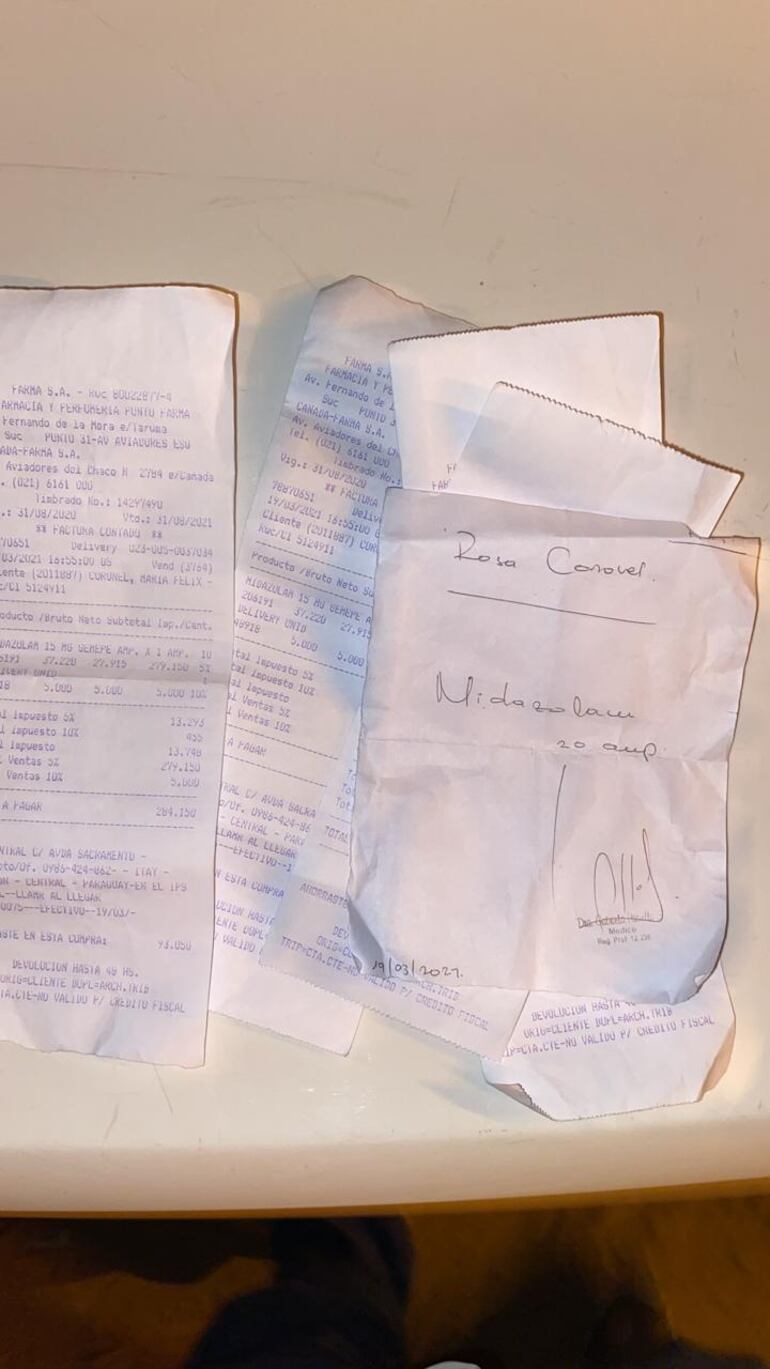 FARMA S.A. - Ruc 80022877-4
ARMACIA Y PERFUMERIA PUNTO FARMA
Fernando de la Mora e/Taruma
Suc PUNTO 31-AV AVIADORES ESQ
ADA-FARMA S.A.
Aviadores del Chaco N 2784 e/Canada
. (021) 6161 000
Timbrado No.: 14297490
.: 31/08/2020 Vto.: 31/08/2021
** FACTURA CONTADO **
70651 Delivery 023-005-0037034
03/2021 16:55:00 05 Vend (3764)
ente (2011887) CORONEL, MARIA FELIX -
c/CI 5124911
oducto /Bruto Neto Subtotal Imp./Cant.
DAZOLAM 15 MG GEMEPE AMP. X 1 AMP. 10
6191 37.220 27.915 279.150 5%
LIVERY UNID
18 5.000 5.000 5.000 10%
al Impuesto 5% 13.293
l Impuesto 10% 455
l Impuesto 13.748
Ventas 5% 279.150
Ventas 10% 5.000
A PAGAR 284.150
NTRAL C/ AVDA SACRAMENTO -
pto/Of. 0986-424-862- - ITAY -
ON - CENTRAL - PARAGUAY-EN EL IPS
L--LLAMR AL LLEGAR
0075---EFECTIVO--19/03/-
STE EN ESTA COMPRA: 93.050
DEVOLUCION HASTA 48 HS.
ORIG=CLIENTE DUPL=ARCH.TRIB
TA.CTE-NO VALIDO P/ CREDITO FISCAL
FARMA S.A.
FARMACIA Y PE
Av. Fernando de l
Suc PUNTO 3
CANADA-FARMA S.A.
Av. Aviadores del Ch
Tel. (021) 6161 000
Timbrado No.:
Vig.: 31/08/2020
** FACTURA
78870651 Deliv
19/03/2021 16:55:00 0
Cliente (2011887) COR
Ruc/CI 5124911
Producto /Bruto Neto Su
MIDAZOLAM 15 MG GEMEPE A
206191 37.220 27.915
DELIVERY UNID
48918 5.000 5.000
tal Impuesto 5%
tal Impuesto 10%
al Impuesto
l Ventas 5%
Ventas 10%
A PAGAR
TOTAL
RAL C/ AVDA SACRA
o/Of. 0986-424-86
- CENTRAL - PAR
LLAMR AL LLEGAR
---EFECTIVO--1
N ESTA COMPRA
AHORRASTE
DEV
ORIG=CL
TRIP=CTA.CTE-NO VALIDO P/ CREDITO FISCAL
ARCH.TRIB
Rosa Coronel.
Midazolam
20 amp.
Medico
Reg. Prof
19/03/2021.
DEVOLUCION HASTA
ORIG=CLIENTE DUPL=ARCH.TRIB
IP=CTA.CTE-NO VALIDO P/ CREDITO FISCAL